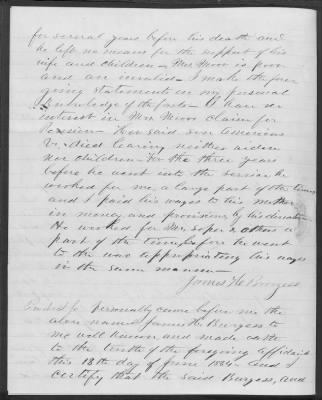 for several years before his death and
he left no means for the support of his
wife and children - Mrs Moor is poor
and an invalid. I make the fore
going statements on my personal
knowledge of the facts - I have no
interest in Mrs Moors claim for
Pension - Her said son
died leaving neither widow
nor children - For the three years
before he went into the service he
worked for me a large part of the time
and I paid his wages to his mother
in money and provisions by his direction
He worked for Mr Soper & others a
part of the time before he went
to the war appropriating his wages
in the same manner -
James H Burgess
personally came before me the
above named James H. Burgess to
me well known and made oath
to the truth of the foregoing affidavit
this 18th day of June 1884 and I
certify that the said Burgess, and